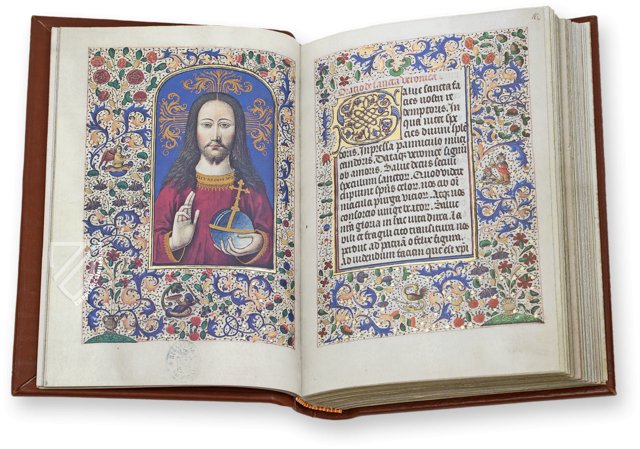 Oratio de sancta veronica
Salue sancta fa
cies nostri re
demptoris. In
qua nitet spe
cies diuini sple
doris. Impressa panniculo niuei
candoris. Dataque veronice signum
ob amoris. Salue decus seculi
speculum sanctorum. Quod videre
cupiunt spiritus celorum. nos ab omni
macula purga viciorum. Atque nos
consorcio iunge beatorum. Salue
nostra gloria in hac vita dura. la
bili et fragili cito transitura. nos
perduc ad patriam o felix figura.
ad videndum faciem que est xpi